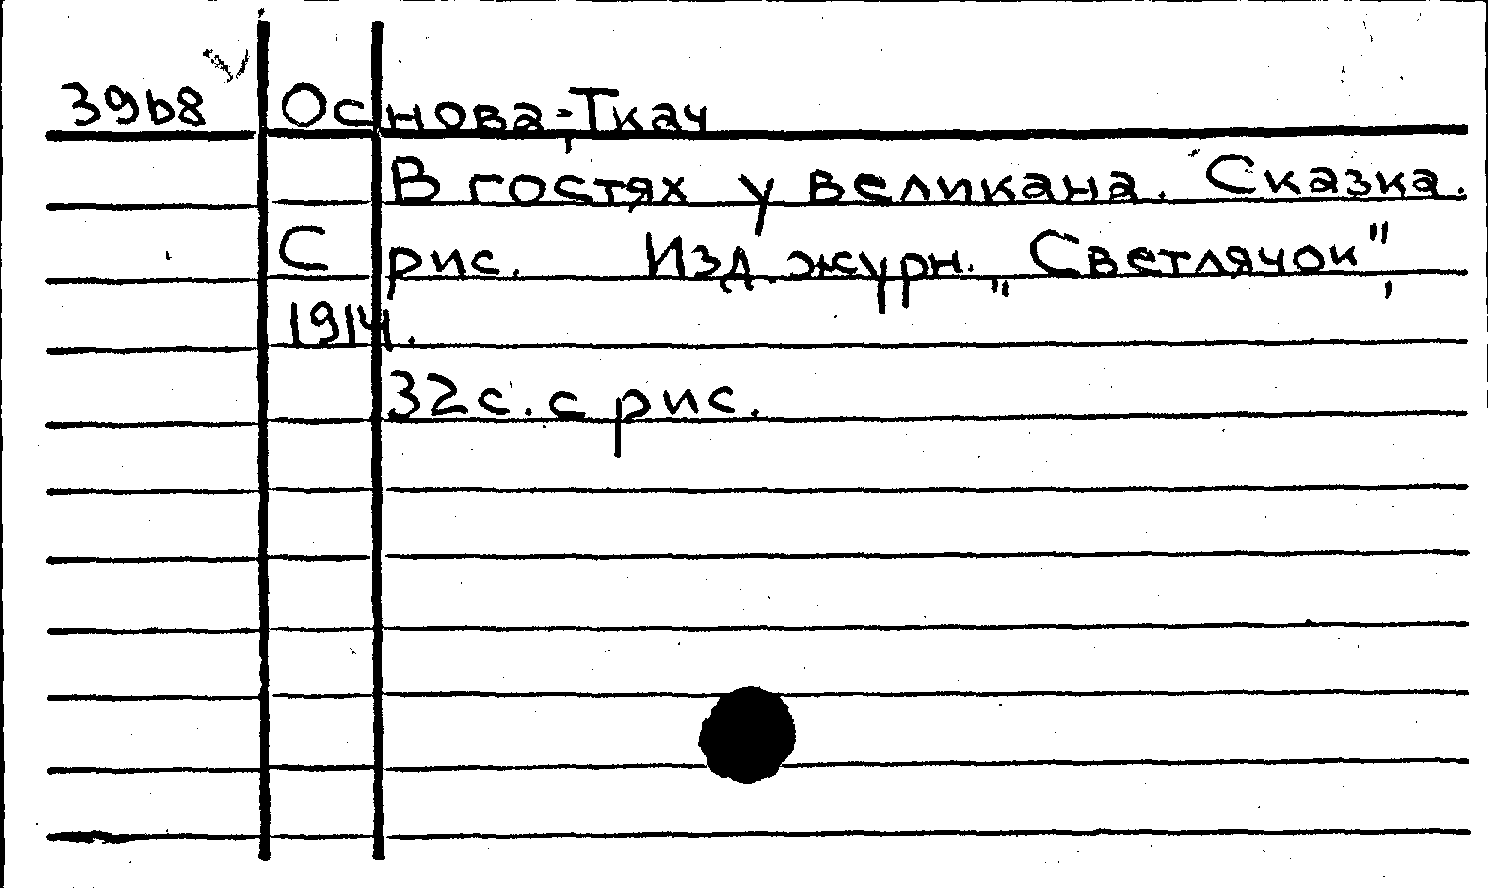 39b8 Основа-Ткач
В гостях у великана. Сказка.
С рис. Изд. журн. „Светлячок",
1914.
32 с. с рис.